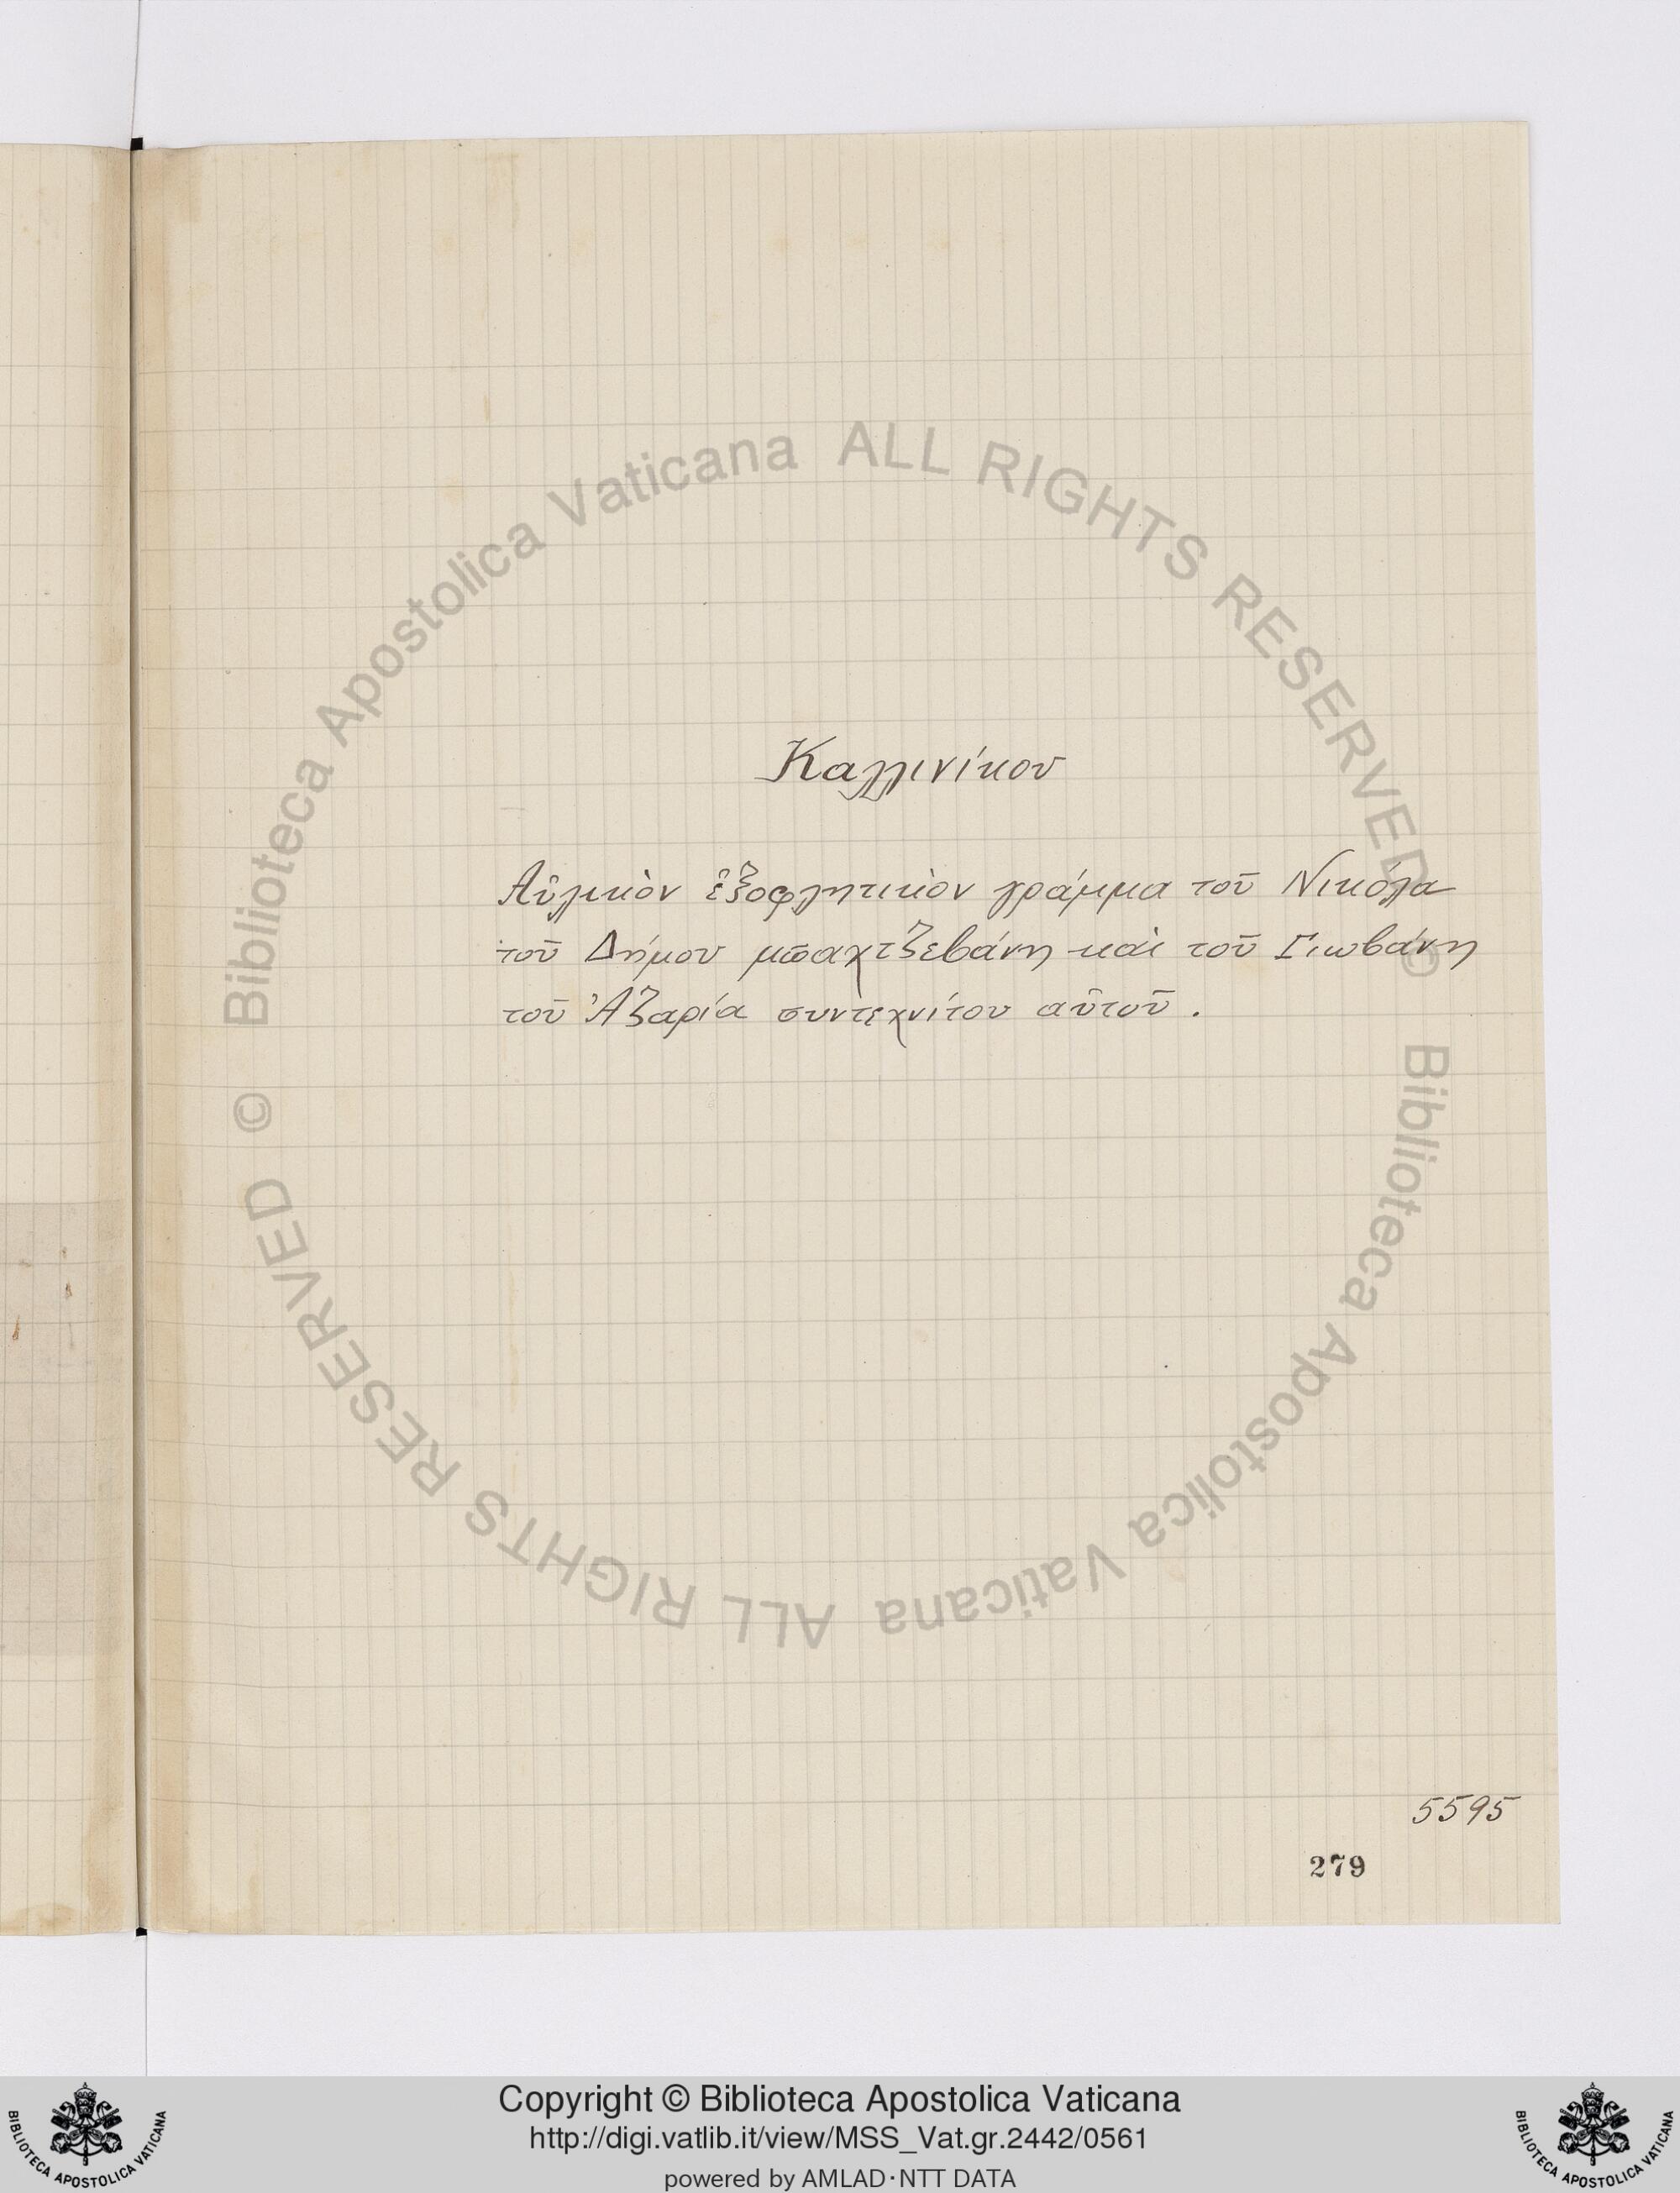 Καλλινίκου
Αὐλικὸν ἐξοφλητικὸν γράμμα τοῦ Νικόλα
τοῦ Δήμου μπαχτζεβάνη καὶ τοῦ Γιωβάνη
τοῦ Ἀζαρία συντεχνίτου αὐτοῦ.
5595
279
© Biblioteca Apostolica Vaticana ALL RIGHTS RESERVED
© Biblioteca Apostolica Vaticana ALL RIGHTS RESERVED
Copyright © Biblioteca Apostolica Vaticana
http://digi.vatlib.it/view/MSS_Vat.gr.2442/0561
powered by AMLAD·NTT DATA
BIBLIOTECA APOSTOLICA VATICANA
BIBLIOTECA APOSTOLICA VATICANA